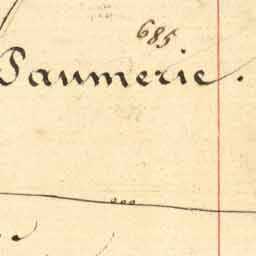 685
Paumerie.